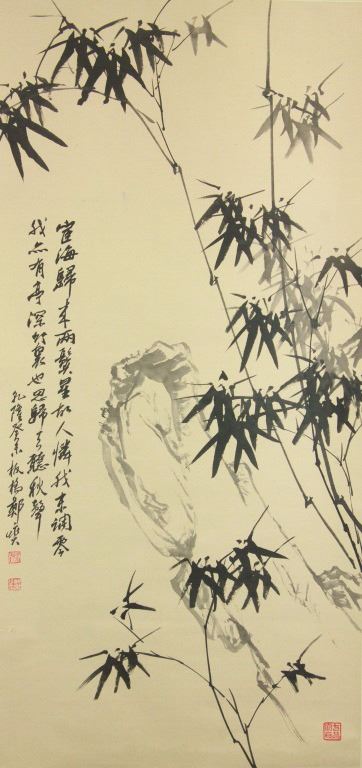 宦海歸来两鬢星故人憐我未凋零
我亦有亭深竹裏也思歸去聽秋聲
乾隆癸未板橋鄭燮